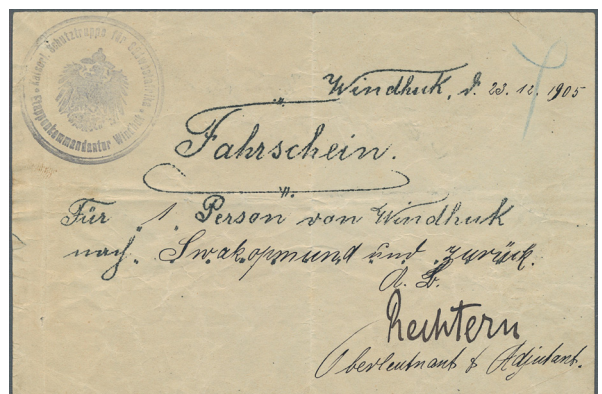 Kaiserl. Schutztruppe für Südwestafrika
Etappenkommandantur Windhuk
Windhuk, d. 23. 12. 1905
Fahrschein.
Für 1 Person von Windhuk
nach Swakopmund und zurück.
A. B.
Rechtern
Oberleutnant & Adjutant.